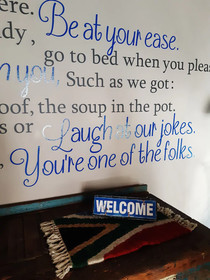 ere.
Be at your ease.
dy,
go to bed when you pleas
n you, Such as we got:
oof, the soup in the pot.
s or Laugh at our jokes.
You're one of the folks
WELCOME